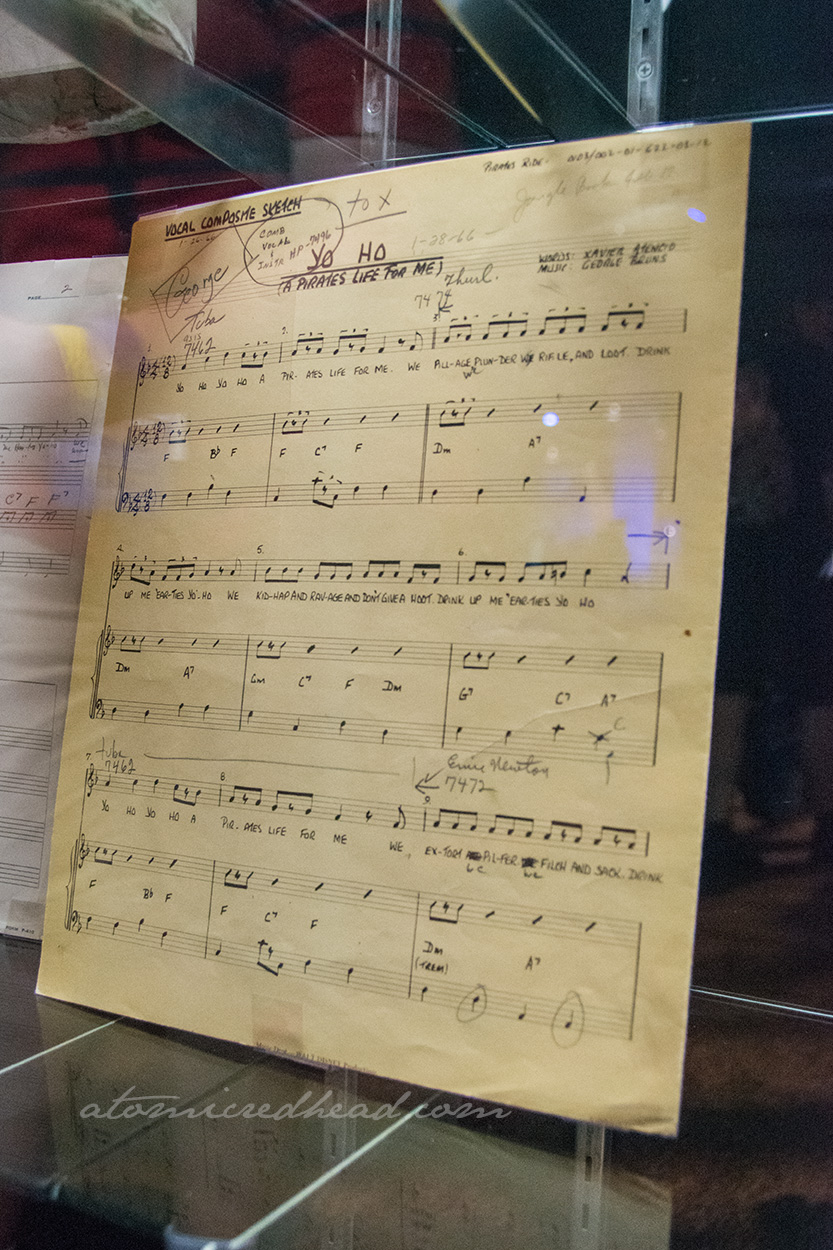 PIRATES RIDE -
VOCAL COMPOSITE SKETCH
to X
COMB
VOCAL
INSTR MP-7496
1-28-66
YO HO
(A PIRATES LIFE FOR ME)
WORDS: XAVIER ATENCIO
MUSIC: GEORGE BRUNS
George
Tuba
7462
Thurl.
74 74
1. 2. 3.
YO HO YO HO A PIR-ATES LIFE FOR ME. WE PILL-AGE PLUN-DER WE RIFLE, AND LOOT. DRINK
WE
F Bb F F C7 F Dm A7
4. 5. 6.
UP ME 'EAR-TIES YO-HO WE KID-NAP AND RAV-AGE AND DON'T GIVE A HOOT. DRINK UP ME 'EAR-TIES YO HO
Dm A7 Gm C7 F Dm G7 C7 A7
C
tuba
7462
Ernie Newton
7472
7. 8. 9
YO HO YO HO A PIR-ATES LIFE FOR ME WE, EX-TORT PIL-FER FILCH AND SACK. DRINK
WE WE
F Bb F F C7 F Dm A7
(TREM)
PAGE 2
C7 F F7
WALT DISNEY
atomicredhead.com